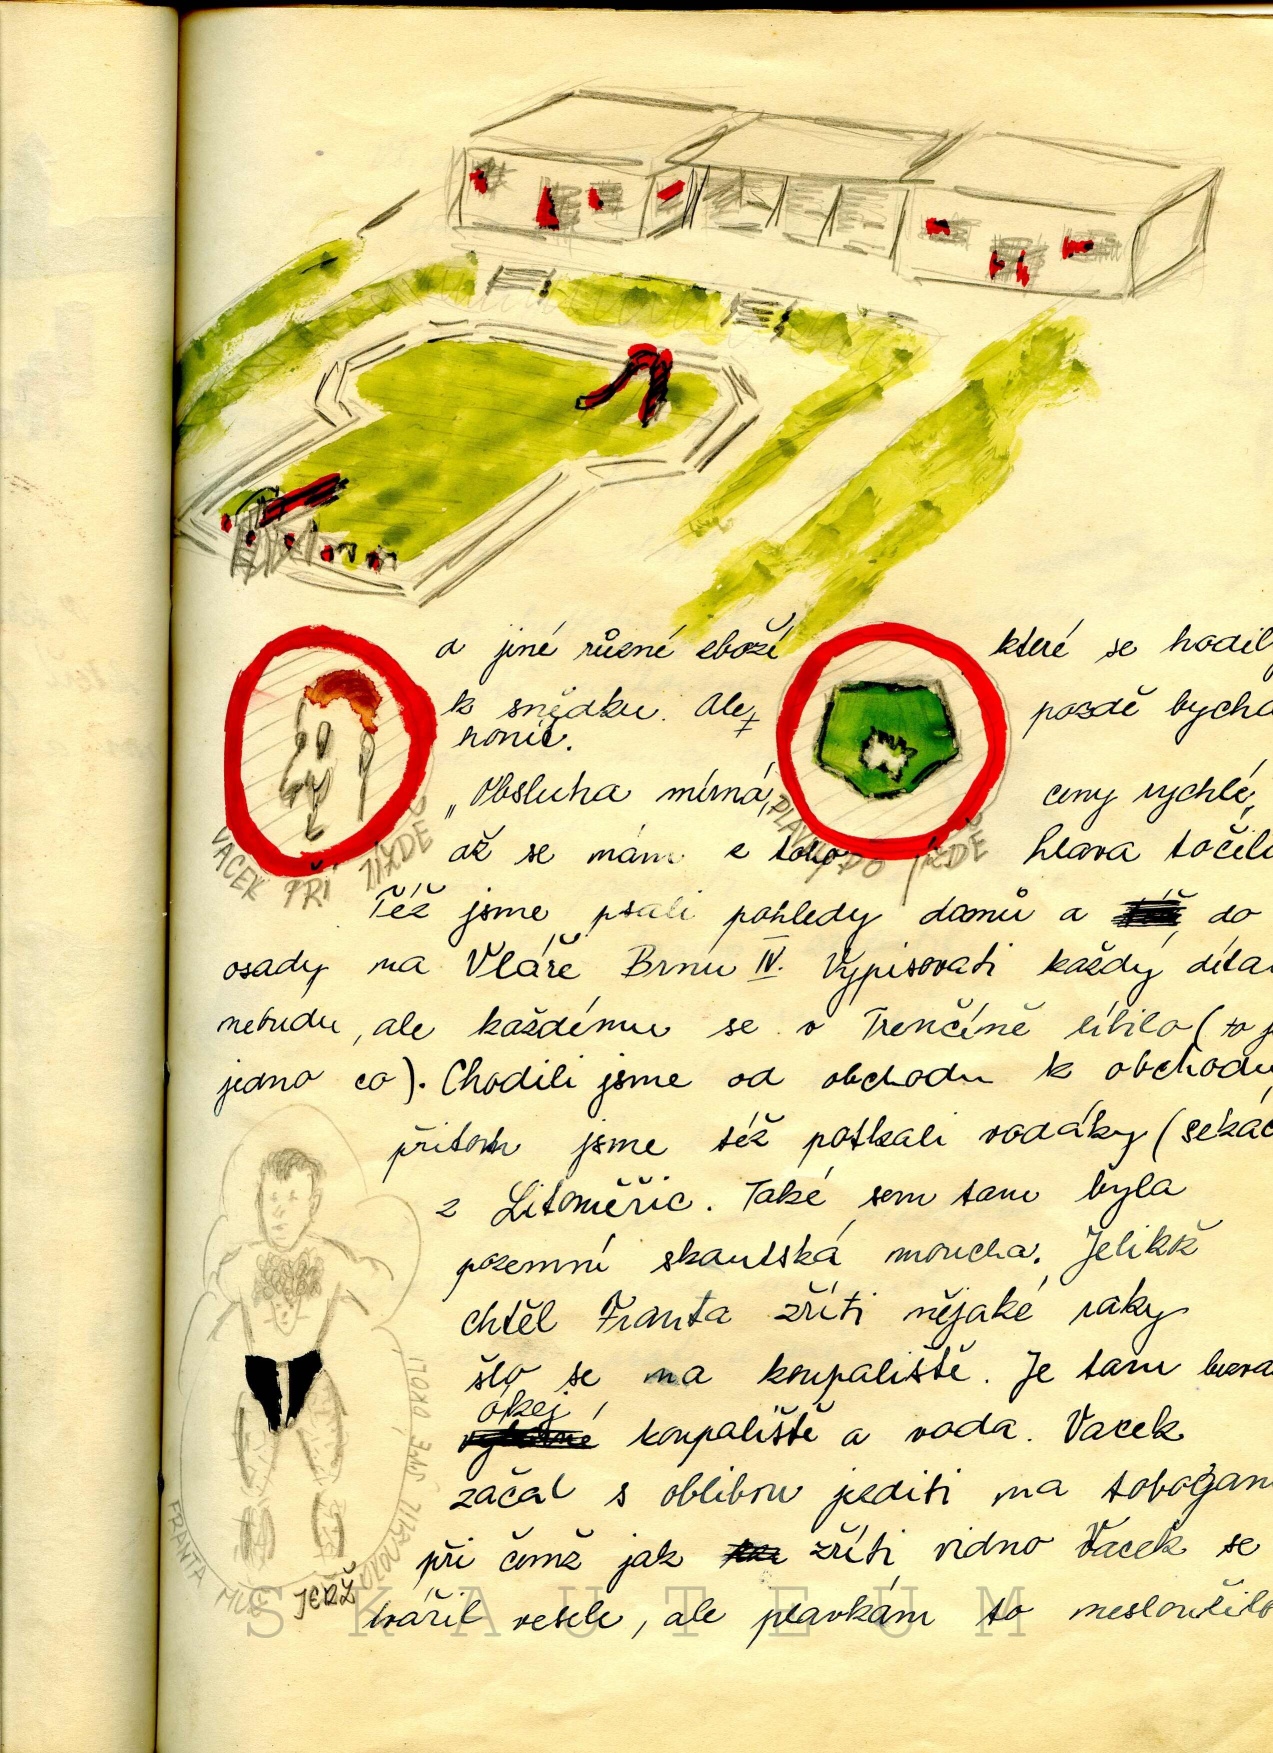 a jiné různé zboží které se hodil
k snědku. Ale pozdě bycha
honit.
„Obsluha mírná, ceny rychlé,
až se nám z toho hlava točil
Též jsme psali pohledy domů a do
osady na Vláře Brnu IV. Vypisovati každý
nebudu, ale každému se v Trenčíně líbilo (to j
jedno co). Chodili jsme od obchodu k obchodu,
přitom jsme též potkali vodáky (sekác
z Litoměřic. Také sem tam byla
pozemní skautská moucha. Jelikž
chtěl Franta zříti nějaké raky
šlo se na koupaliště. Je tam
okej
koupaliště a voda. Vacek
začal s oblibou jezditi na tobogan
při čemž jak zříti vidno Vacek se
tvářil vesele, ale plavkám to nesloužilo
VACEK PŘI JÍZDĚ
PLAVKY PO JÍZDĚ
FRANTA
JERŽ
SKAUTEUM